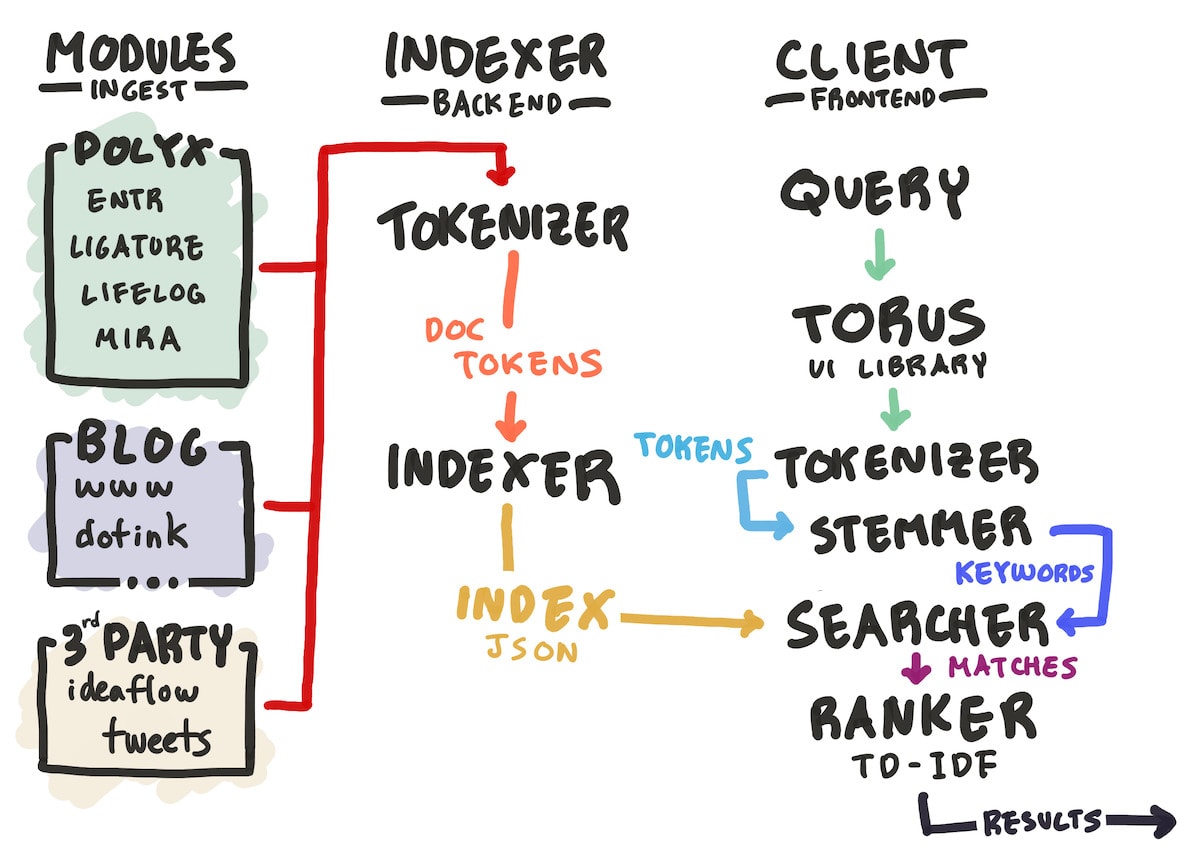 MODULES
INGEST
POLYX
ENTR
LIGATURE
LIFELOG
MIRA
BLOG
www
dotink
...
3rd PARTY
ideaflow
tweets
INDEXER
BACKEND
TOKENIZER
DOC
TOKENS
INDEXER
INDEX
JSON
CLIENT
FRONTEND
QUERY
TORUS
UI LIBRARY
TOKENS
TOKENIZER
STEMMER
KEYWORDS
SEARCHER
MATCHES
RANKER
TD-IDF
RESULTS